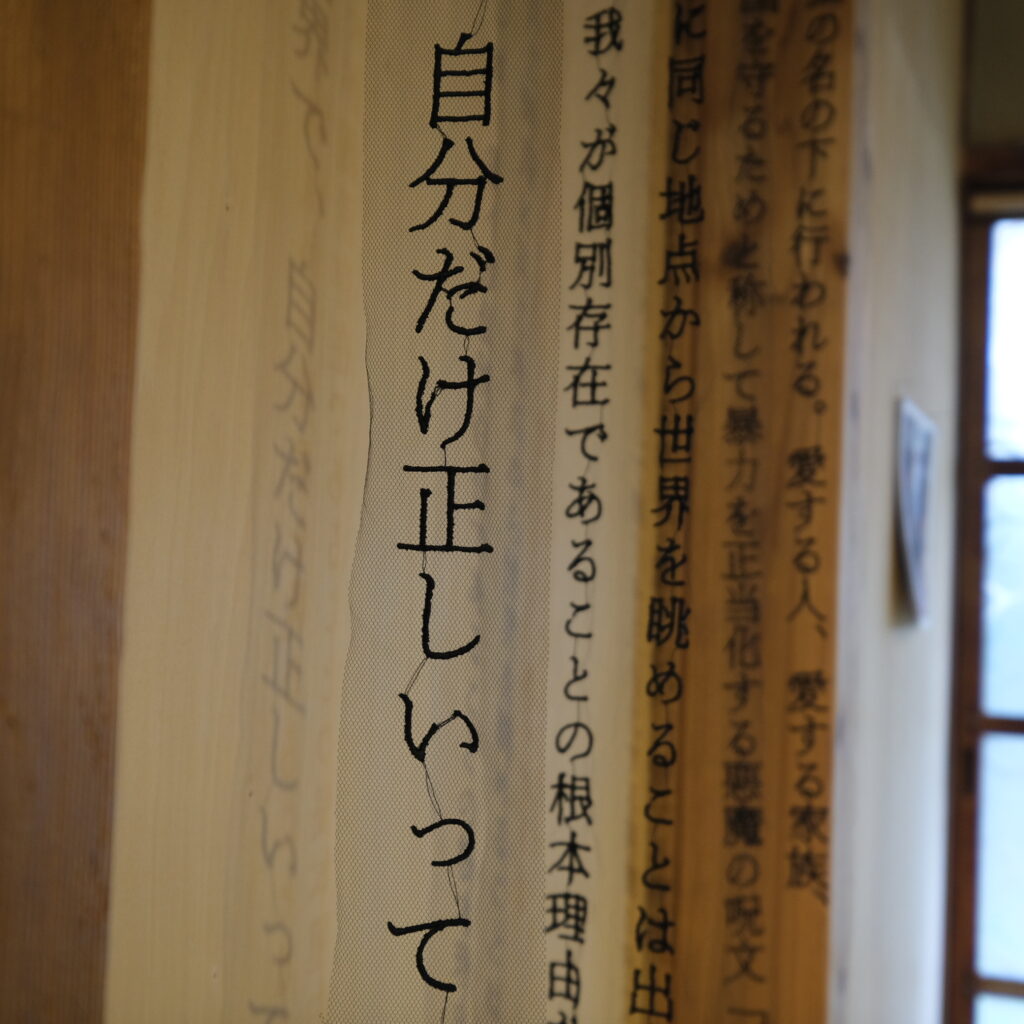 の名の下に行われる。愛する人、愛する家族、
を守るためと称して暴力を正当化する悪魔の呪文「
に同じ地点から世界を眺めることは出
我々が個別存在であることの根本理由
自分だけ正しいって